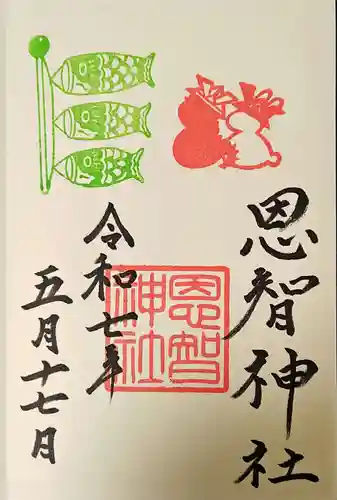 恩智神社
恩智
神社
令和七年
五月十七日